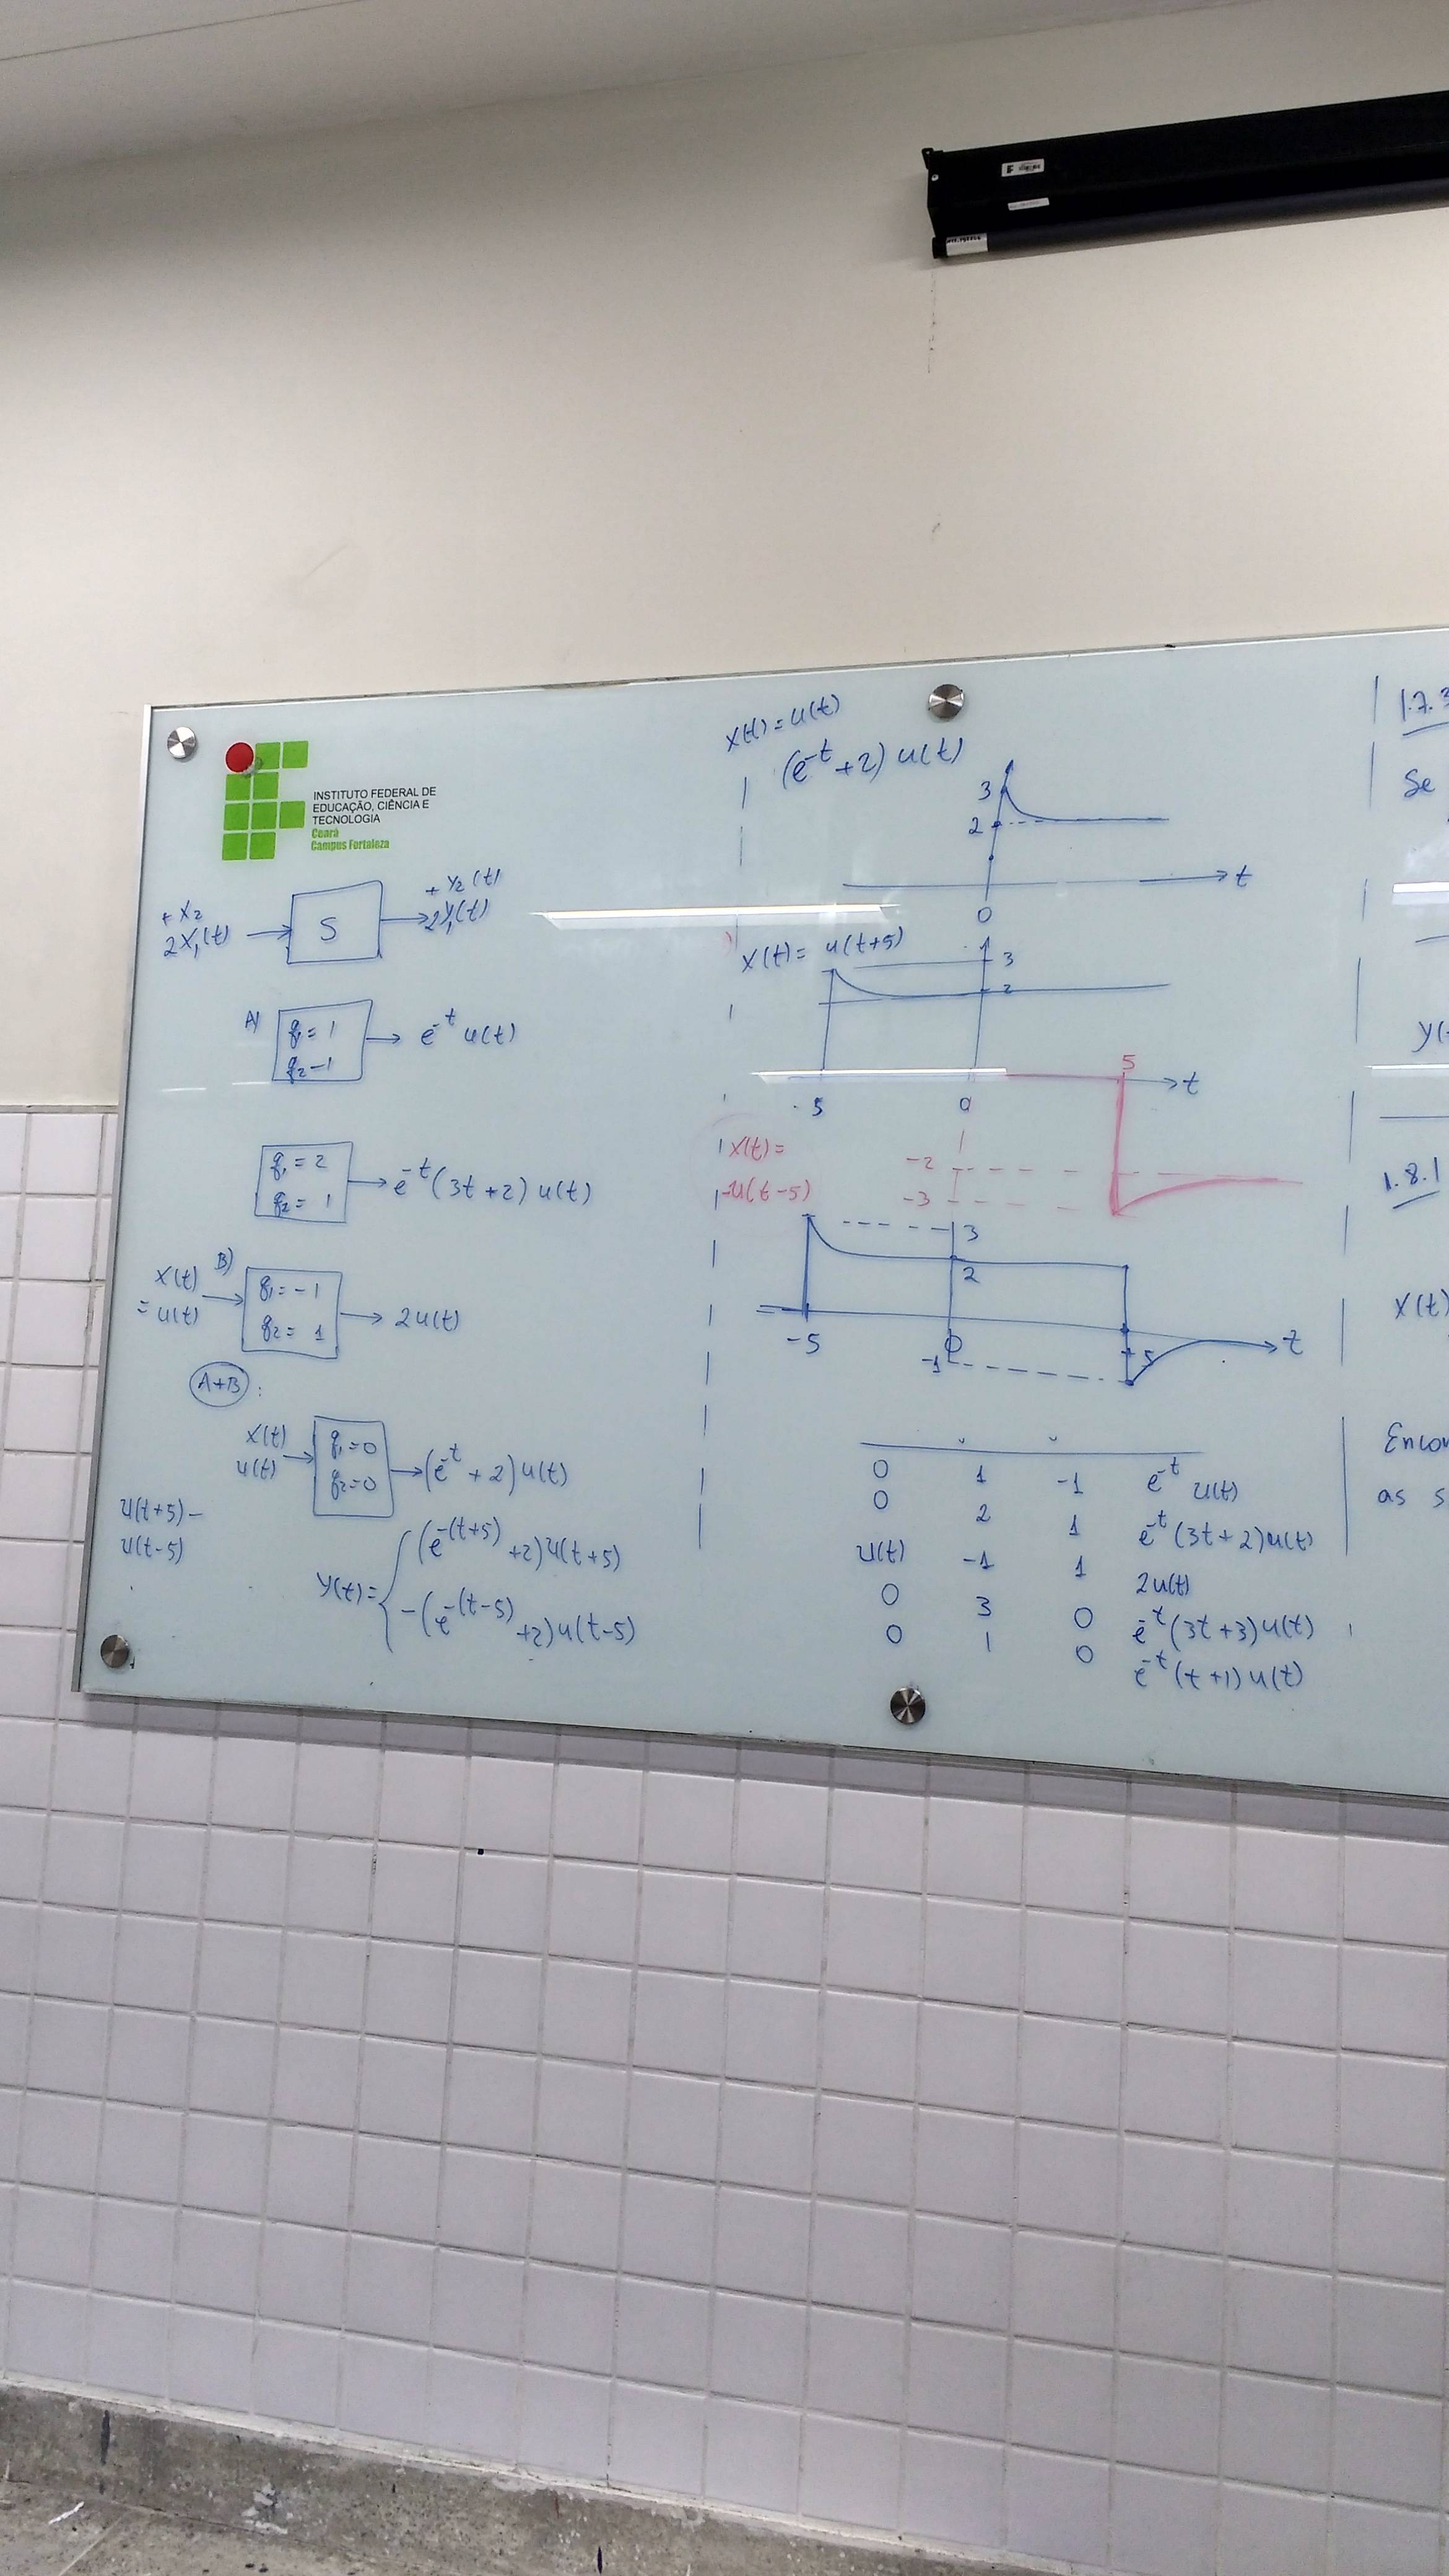 INSTITUTO FEDERAL DE
EDUCAÇÃO, CIÊNCIA E
TECNOLOGIA
Ceará
Campus Fortaleza
+ x₂
2x₁(t)
S
+ y₂(t)
2y₁(t)
A)
q₁ = 1
q₂ -1
e^-t u(t)
q₁ = 2
q₂ = 1
e^-t(3t+2) u(t)
x(t)
= u(t)
B)
q₁ = -1
q₂ = 1
2u(t)
A+B :
x(t)
u(t)
q₁ = 0
q₂ = 0
(e^-t + 2) u(t)
u(t+5) -
u(t-5)
y(t) = { (e^-(t+5) +2) u(t+5)
-(e^-(t-5) +2) u(t-5)
x(t) = u(t)
(e^-t +2) u(t)
3
2
0
t
x(t) = u(t+5)
3
2
-5
0
5
t
x(t) =
-u(t-5)
-2
-3
3
2
-5
0
-1
5
t
0 1 -1 e^-t u(t)
0 2 1 e^-t (3t+2)u(t)
u(t) -1 1 2u(t)
0 3 0 e^-t (3t+3)u(t)
0 1 0 e^-t (t+1) u(t)
1.7.3
Se
1.8.1
x(t)
as s